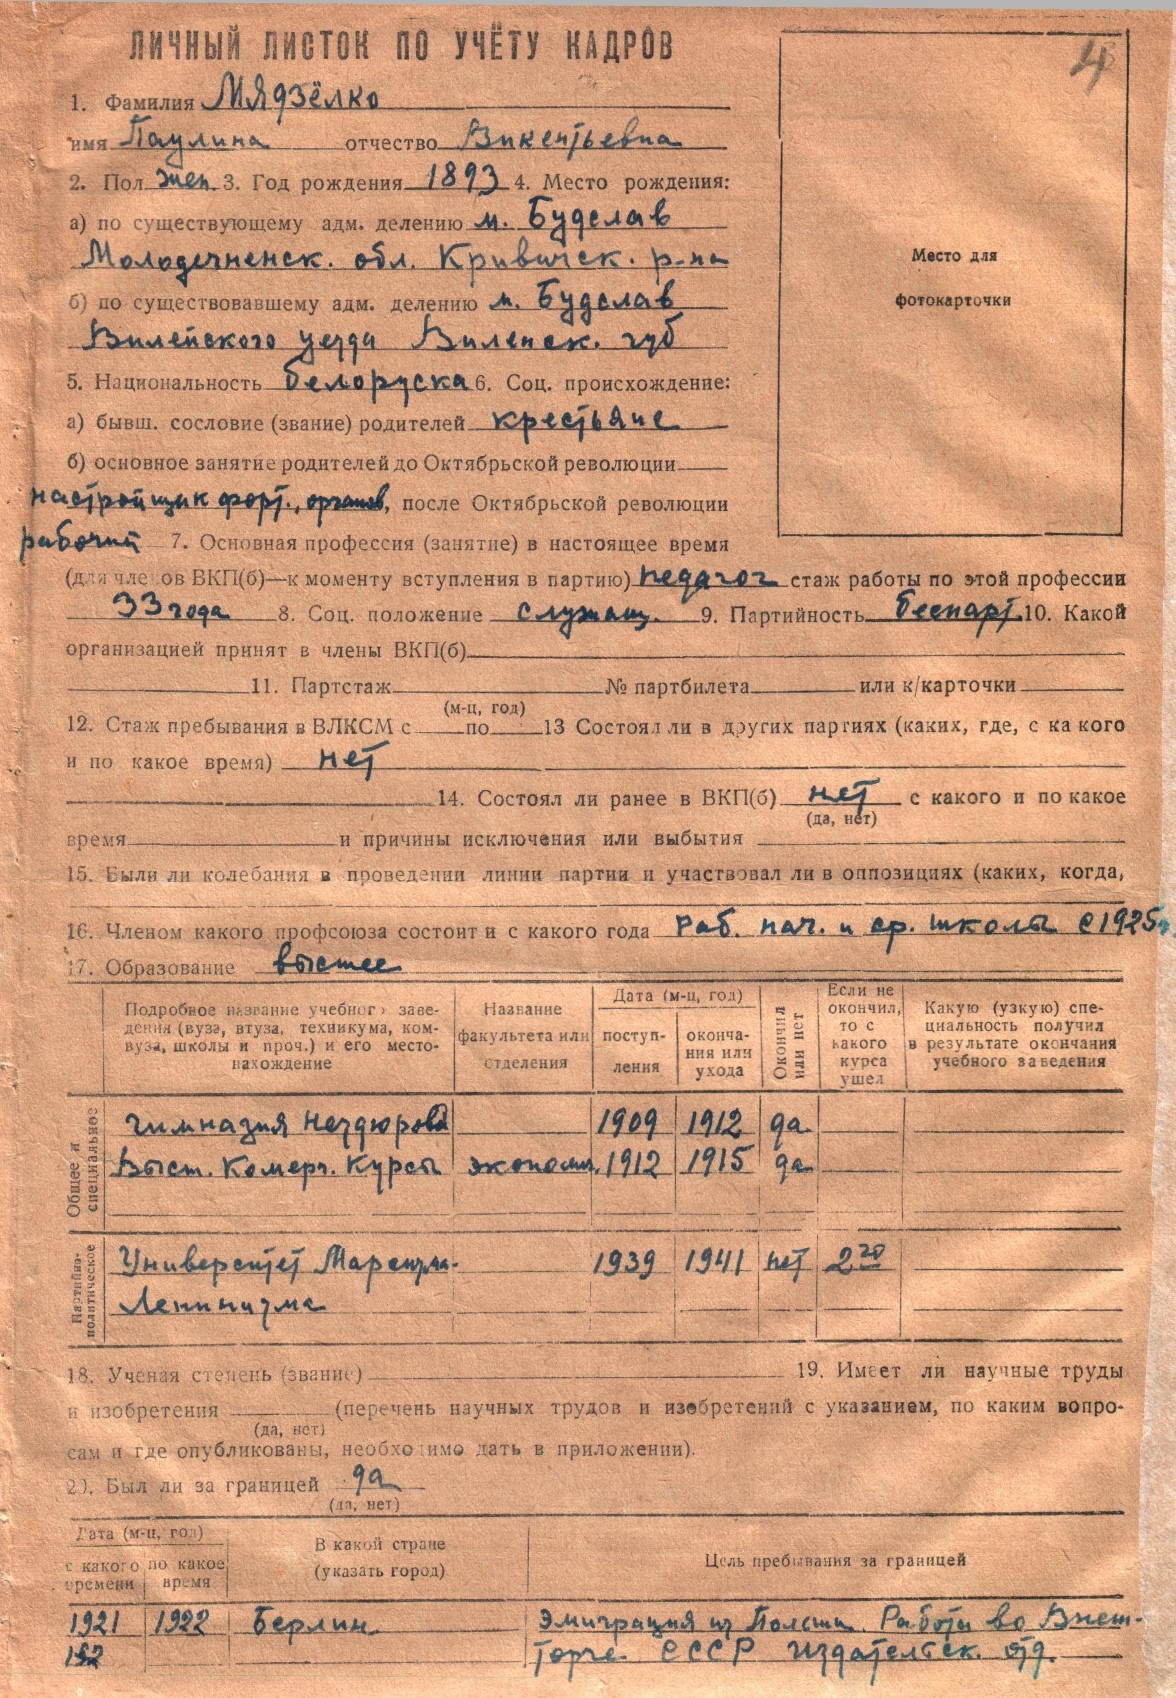 4
ЛИЧНЫЙ ЛИСТОК ПО УЧЁТУ КАДРОВ
1. Фамилия Мядзёлко
имя Паулина отчество Викентьевна
2. Пол жен 3. Год рождения 1893 4. Место рождения:
а) по существующему адм. делению м. Будслав
Молодечненск. обл. Кривичск. р-на
б) по существовавшему адм. делению м. Будслав
Вилейского уезда Виленск. губ
5. Национальность белоруска 6. Соц. происхождение:
а) бывш. сословие (звание) родителей крестьяне
б) основное занятие родителей до Октябрьской революции
настройщик форт., органов, после Октябрьской революции
рабочий 7. Основная профессия (занятие) в настоящее время
(для членов ВКП(б)—к моменту вступления в партию) педагог стаж работы по этой профессии
33 года 8. Соц. положение служащ. 9. Партийность беспарт. 10. Какой
организацией принят в члены ВКП(б)
11. Партстаж № партбилета или к/карточки
(м-ц, год)
12. Стаж пребывания в ВЛКСМ с по 13 Состоял ли в других партиях (каких, где, с ка кого
и по какое время) нет
14. Состоял ли ранее в ВКП(б) нет с какого и по какое
(да, нет)
время и причины исключения или выбытия
15. Были ли колебания в проведении линии партии и участвовал ли в оппозициях (каких, когда,
16. Членом какого профсоюза состоит и с какого года Раб. нач. и ср. школы с 1925 г.
17. Образование высшее
Подробное название учебного заведения (вуза, втуза, техникума, комвуза, школы и проч.) и его местонахождение
Название факультета или отделения
Дата (м-ц, год)
поступления
окончания или ухода
Окончил или нет
Если не окончил, то с какого курса ушел
Какую (узкую) специальность получил в результате окончания учебного заведения
Общее и специальное
гимназия Нездюрова 1909 1912 да
Высш. Комерч. Курсы экономич. 1912 1915 да
Партийно-политическое
Университет Марсизма- 1939 1941 нет 2го
Ленинизма
18. Ученая степень (звание) 19. Имеет ли научные труды
и изобретения (перечень научных трудов и изобретений с указанием, по каким вопро-
(да, нет)
сам и где опубликованы, необходимо дать в приложении).
20. Был ли за границей да
(да, нет)
Дата (м-ц, год)
с какого времени
по какое время
В какой стране (указать город)
Цель пребывания за границей
1921 1922 Берлин Эмиграция из Польши. Работа во Внеш-
торге СССР издательск. отд.
Место для
фотокарточки